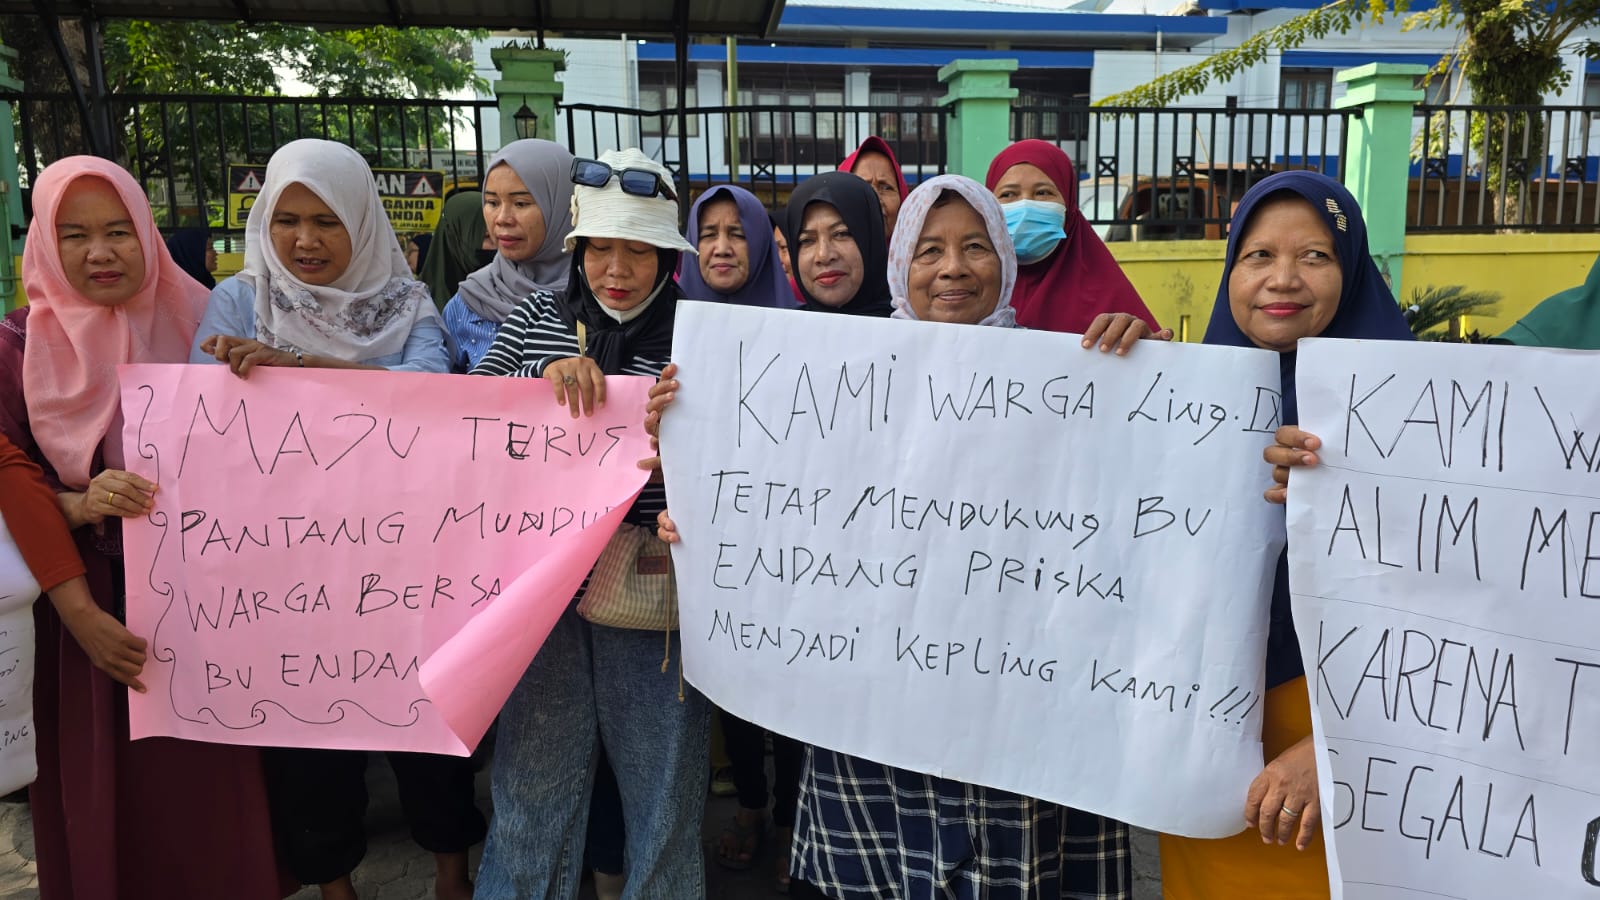 MAJU TERUS
PANTANG MUNDUR
WARGA BERSA
BU ENDAN
KAMi WARGA Ling. IX
TETAP MENDUKUNg BU
ENDANG PRiSKA
MENJADi KEPLiNG KAMi !!!
KAMI WA
ALIM ME
KARENA T
SEGALA
ING
AN
GANDA
ANDA